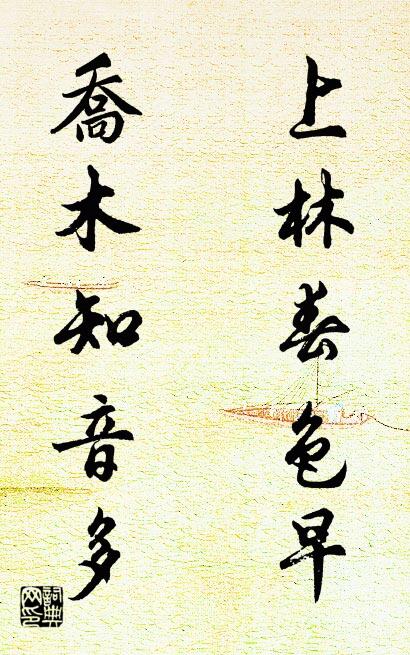 上林春色早
喬木知音多
詞典網印